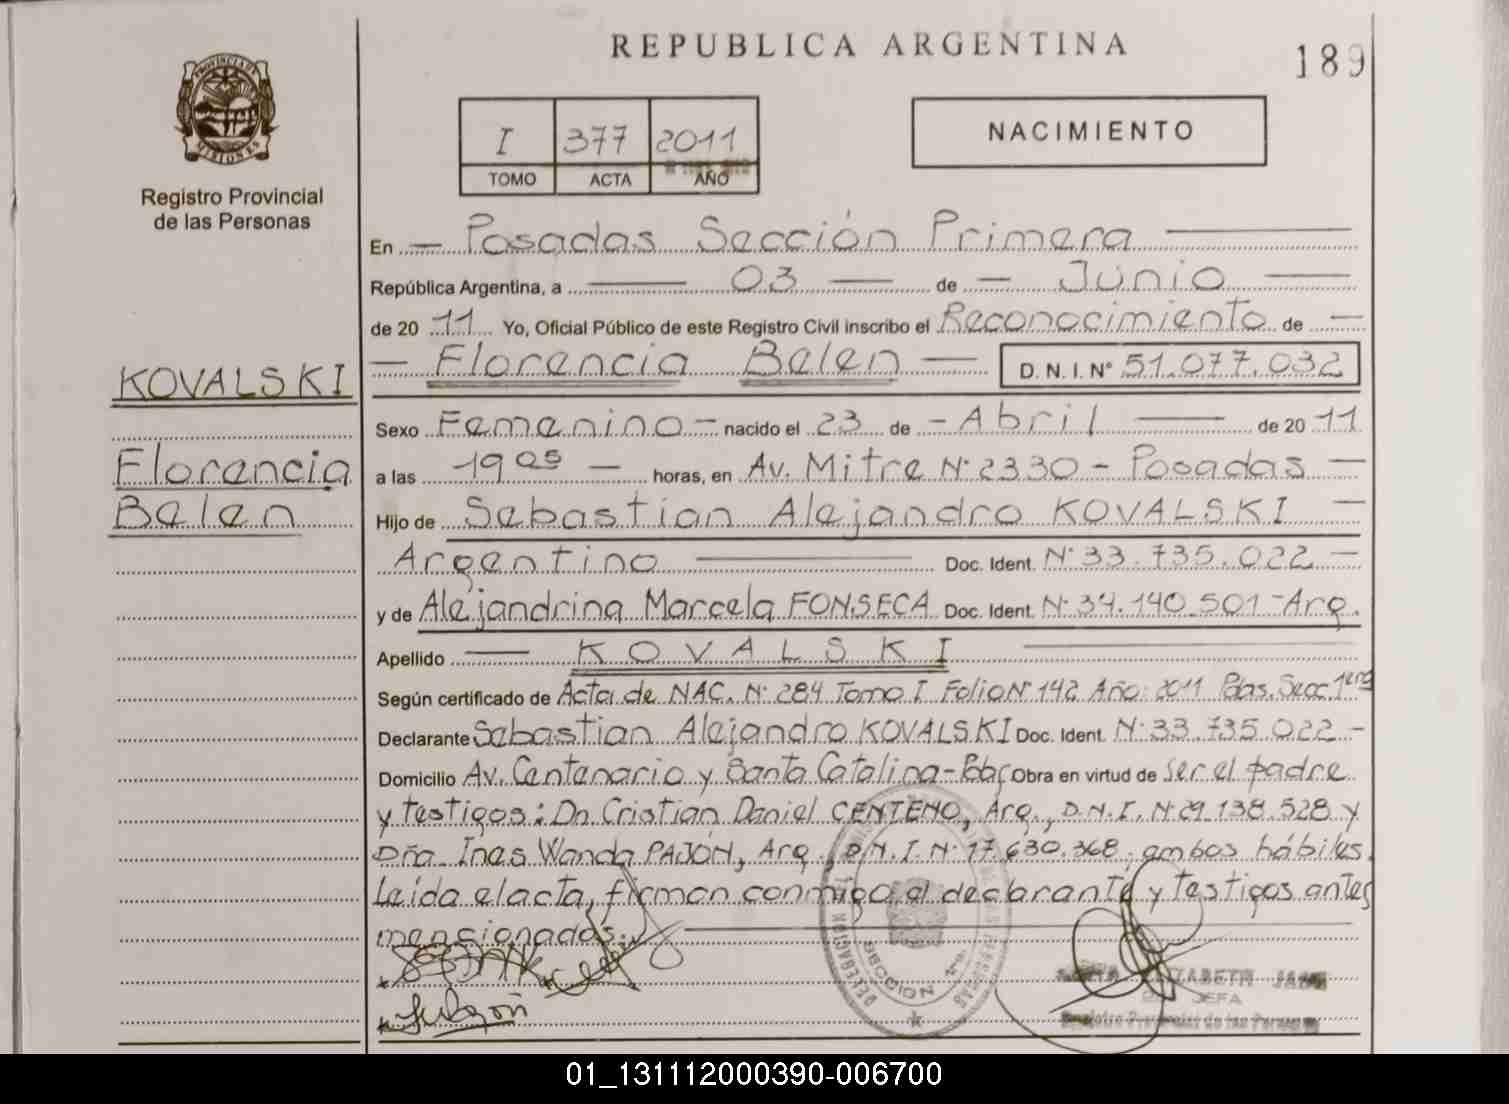 REPUBLICA ARGENTINA
189
PROVINCIA DE
MISIONES
Registro Provincial
de las Personas
I 377 2011
TOMO ACTA AÑO
NACIMIENTO
En Posadas Sección Primera
República Argentina, a 03 de Junio
de 2011 Yo, Oficial Público de este Registro Civil inscribo el Reconocimiento de
Florencia Belen D. N. I. N° 51.077.032
KOVALSKI
Florencia
Belen
Sexo Femenino - nacido el 23 de - Abril de 2011
a las 19 05 horas, en Av. Mitre N° 2330 - Posadas
Hijo de Sebastian Alejandro KOVALSKI
Argentino Doc. Ident. N° 33.735.022
y de Alejandrina Marcela FONSECA Doc. Ident. N° 34.140.501 - Arg.
Apellido KOVALSKI
Según certificado de Acta de NAC. N° 284 Tomo I Folio N° 142 Año: 2011 Pdas. Secc. 1era
Declarante Sebastian Alejandro KOVALSKI Doc. Ident. N° 33.735.022 -
Domicilio Av. Centenario y Santa Catalina - Obra en virtud de ser el padre
y testigos: Dn Cristian Daniel CENTENO, Arg., D.N.I. N° 29.138.528 y
Dña. Ines Wanda PAJÓN, Arg., D.N.I. N° 17.630.368; ambos hábiles.
Leida el acta, firman conmigo el declarante y testigos antes
mencionados.
DELEGACION
SECCION 1ra.
ELIZABETH
JEFA
Registro Provincial de las Personas
01_131112000390-006700